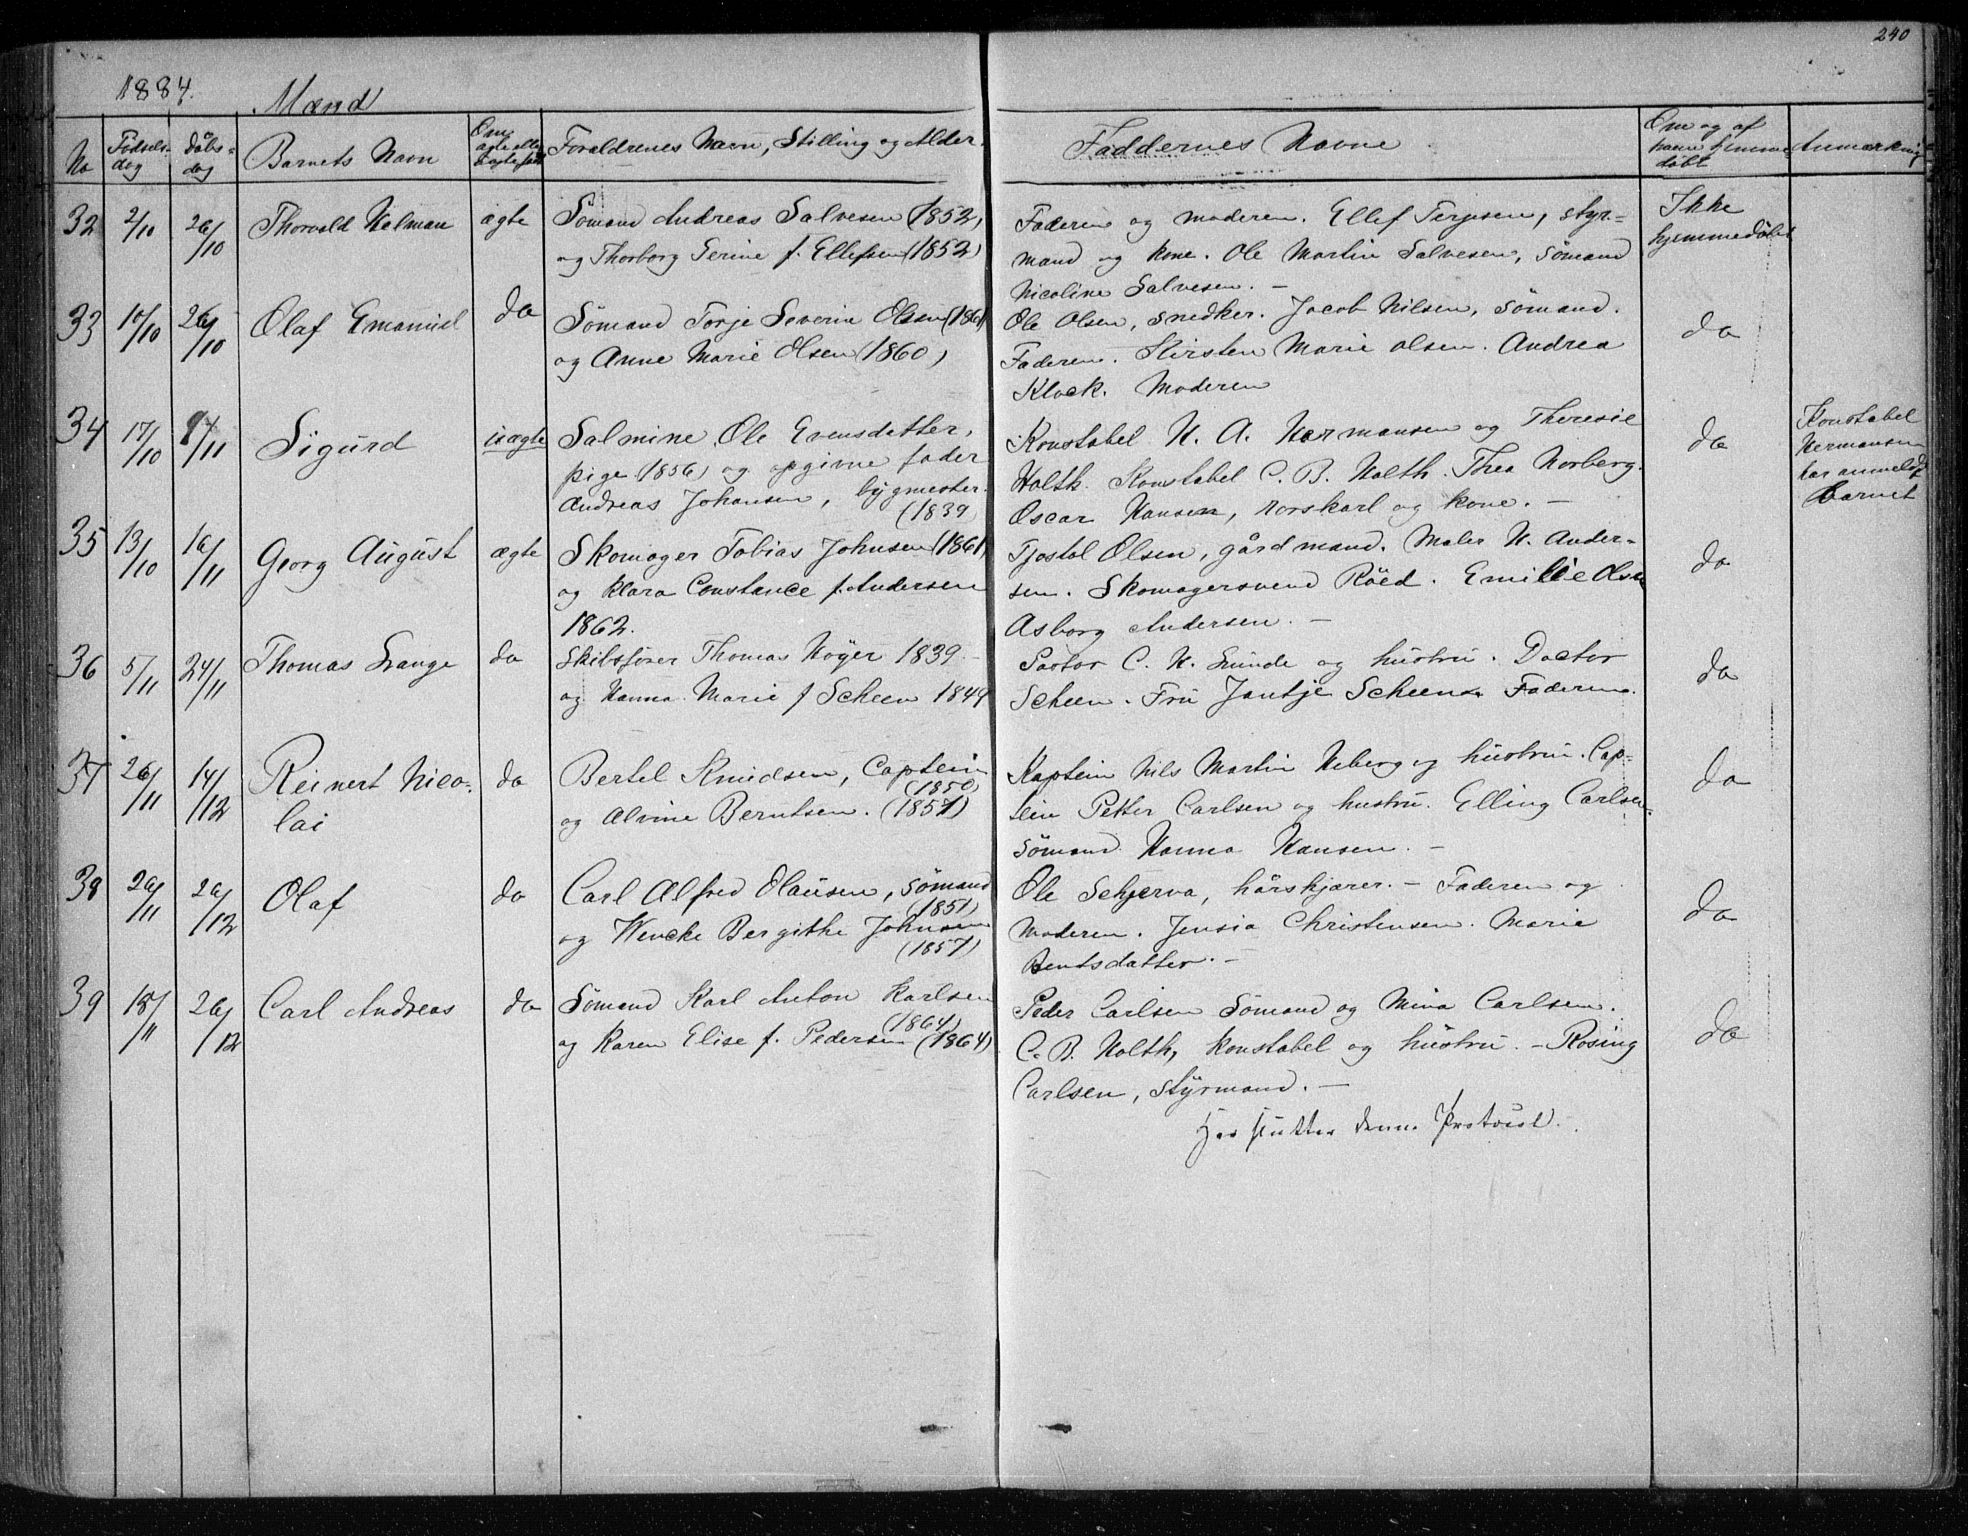 240
1884.
Mænd
No
Fødsels-
dag
døbs-
dag
Barnets Navn
Om
ægte eller
uægte født
Forældrenes Navn, Stilling og Alder.
Faddernes Navne
Om og af
hvem hjemme-
døbt
Anmærkning
32 2/10 26/10 Thorvald Halman ægte
Sømand Andreas Salvesen (1852,
og Thorborg Terine f. Ellefsen (1852)
Faderen og moderen. Ellef Terjesen, styr-
mand og kone. Ole Martin Salvesen, sømand
Nicoline Salvesen. —
Ikke
hjemmedøbt
33 10/10 26/10 Olaf Emanuel do
Sømand Torje Severin Olsen (1861
og Anne Marie Olsen (1860)
Ole Olsen, snedker. Jacob Nilsen, sømand.
Faderen. Kirsten Marie Olsen. Andrea
Klock. Moderen
do
34 17/10 9/11 Sigurd uægte
Salmine Ole Evensdatter,
pige (1856) og opgivne fader
Andreas Johansen, bygmester.
(1839
Konstabel H. A. Hermansen og Theresie
Holth. Konstabel C. B. Holth. Thea Norberg.
Oscar Hansen, rorskarl og kone. —
do
Konstabel
Hermansen
har anmeldt
Barnet
35 13/10 16/11 Georg August ægte
Skomager Tobias Johnsen (1861)
og Klara Constance f. Andersen
1862.
Tjostol Olsen, gårdmand. Maler H. Ander-
sen. Skomagersvend Röed. Emilie Olsen
Asborg Andersen. —
do
36 5/11 24/11 Thomas Lange do
Skibsfører Thomas Höyer 1839 -
og Hanna Marie f Scheen 1849
Pastor C. H. Lunde og hustru. Doctor
Scheen. Fru Jantje Scheen. Faderen.
do
37 26/11 14/12 Reinert Nico-
lai do
Bertel Knudsen, Captein
(1850)
og Alvine Berntsen. (1857)
Kaptein Nils Martin Heberg og hustru. Cap-
tein Petter Carlsen og hustru. Elling Carlsen-
sømand. Hanna Hansen. —
do
38 26/11 26/12 Olaf do
Carl Alfred Olausen, sømand
(1851)
og Wencke Bergithe Johnsen
(1857)
Ole Schjerva, hårskjærer. — Faderen og
Moderen. Jensia Christensen. Marie
Bentsdatter. —
do
39 18/11 26/12 Carl Andreas do
Sømand Karl Anton Karlsen
(1864)
og Karen Elise f. Pedersen (1864)
Peder Carlsen Sømand og Mina Carlsen.
C. B. Holth, konstabel og hustru. — Rosing
Carlsen, Styrmand. —
do
Her slutter denne Protocol.